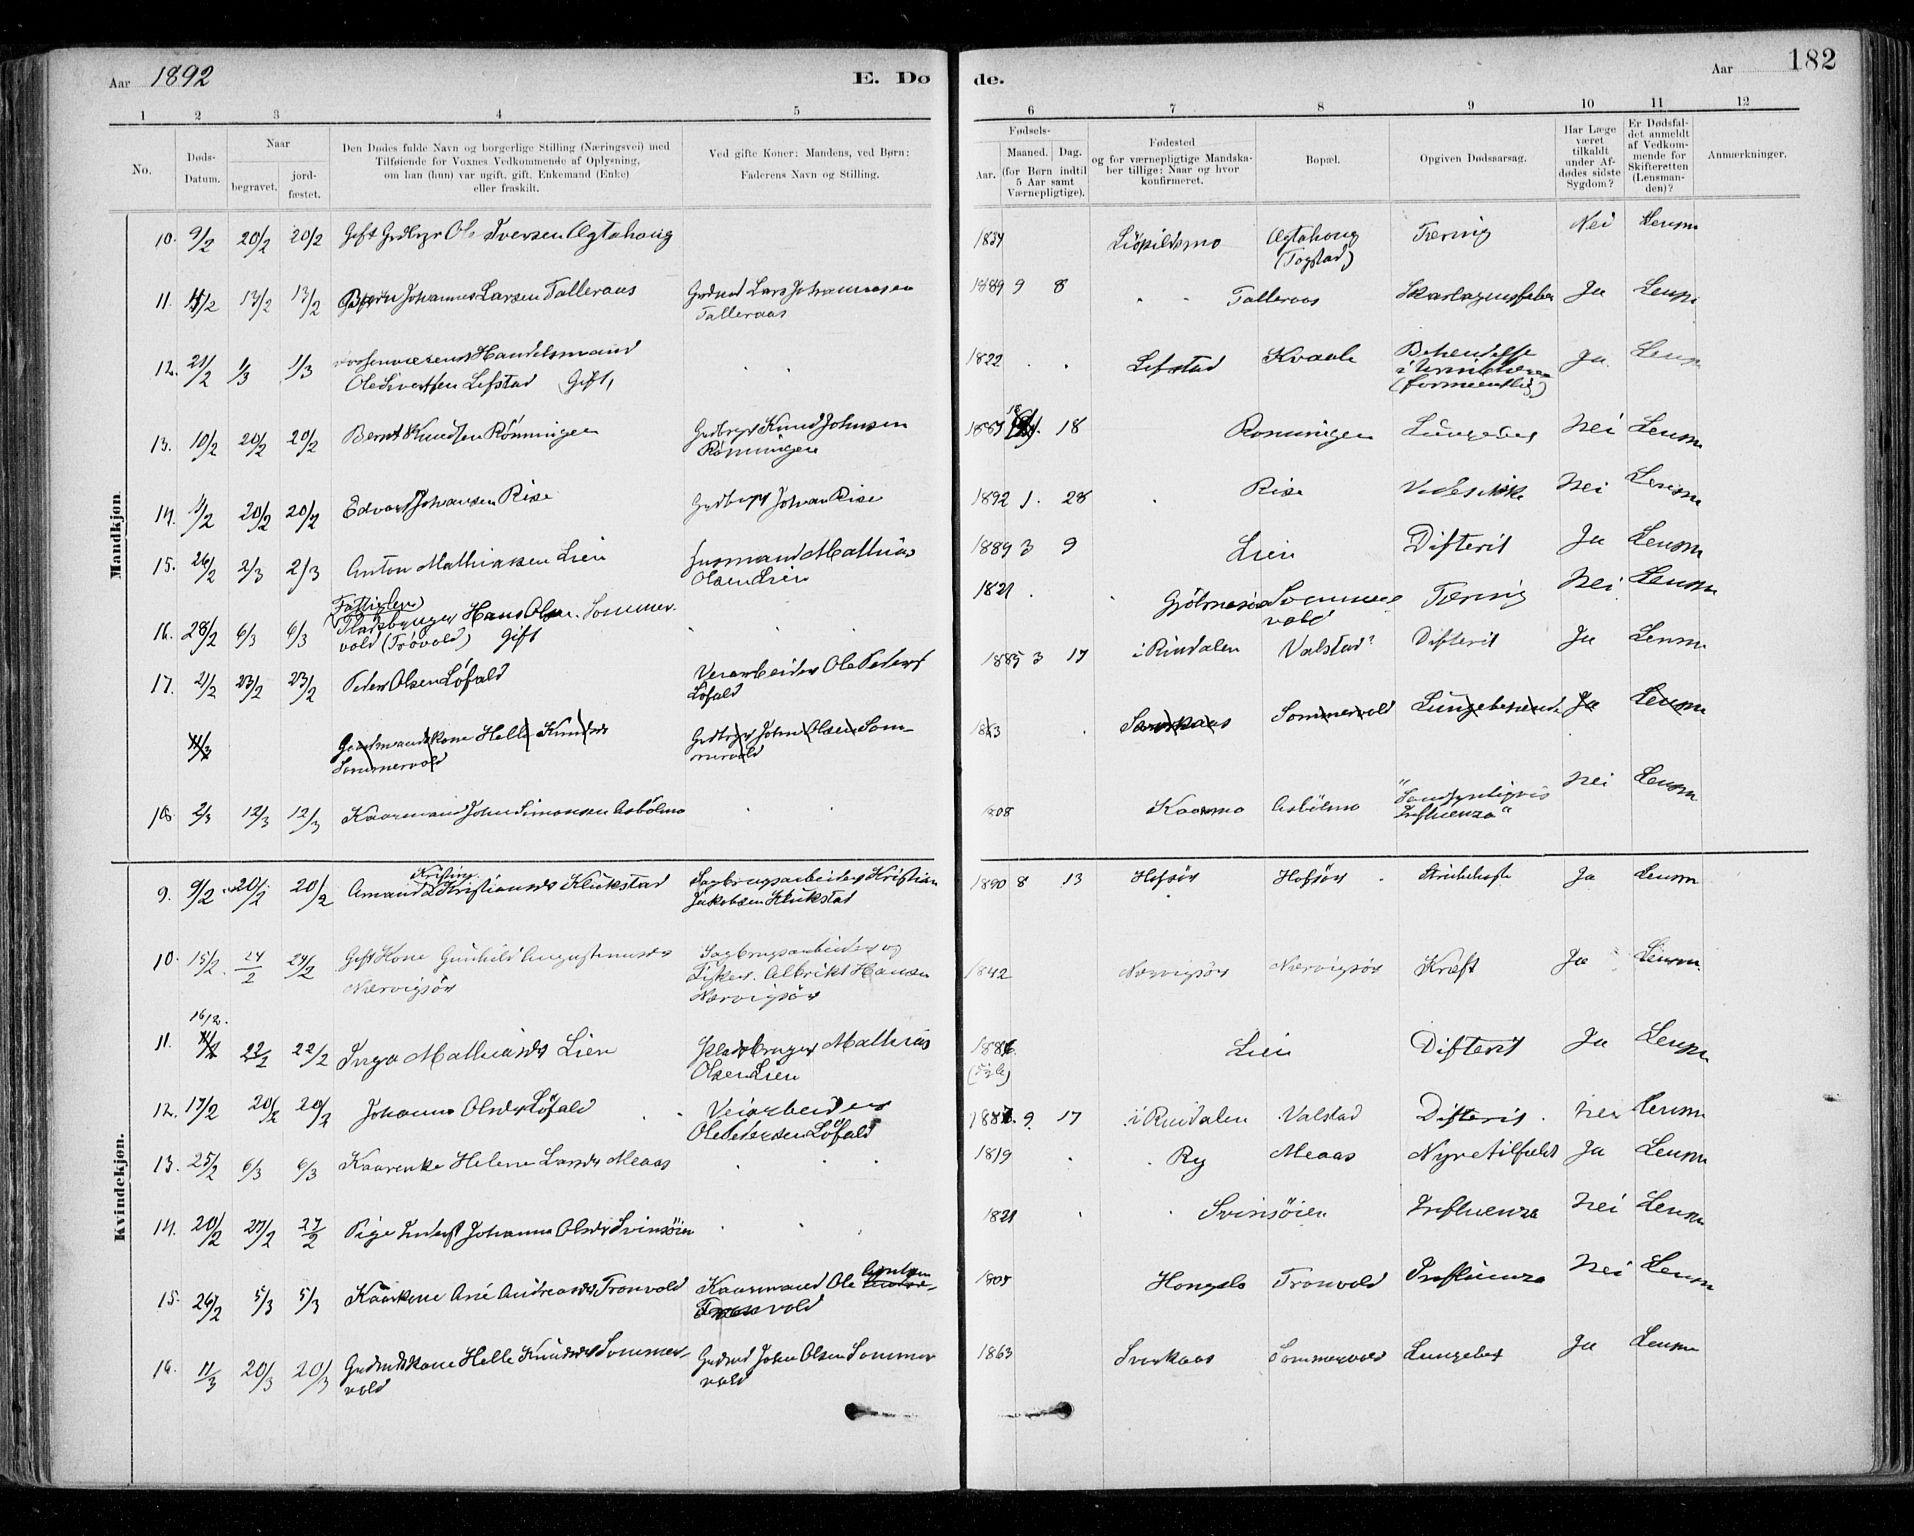 Aar 1892 E. Dø de. Aar 182
1 2 3 4 5 6 7 8 9 10 11 12
No.
Døds-Datum.
Naar
begravet.
jord-fæstet.
Den Dødes fulde Navn og borgerlige Stilling (Næringsvei) med
Tilføiende for Voxnes Vedkommende af Oplysning,
om han (hun) var ugift, gift, Enkemand (Enke)
eller fraskilt.
Ved gifte Koner: Mandens, ved Børn:
Faderens Navn og Stilling.
Fødsels-
Aar.
Maaned. Dag.
(for Børn indtil
5 Aar samt
Værnepligtige).
Fødested
og for værnepligtige Mandska-
ber tillige: Naar og hvor
konfirmeret.
Bopæl.
Opgiven Dødsaarsag.
Har Læge
været
tilkaldt
under Af-
dødes sidste
Sygdom?
Er Dødsfal-
det anmeldt
af Vedkom-
mende for
Skifteretten
(Lensman-
den)?
Anmærkninger.
Mandkjøn.
10. 9/2 20/2 20/2 Gift Grdbrgr Ole Iversen Ægtahaug 1834 Ægtahaug Tæring Nei Lensm
(Togstad)
11. 13/2 13/2 Johannes Larsen Talleraas Grdmd Lars Johannesen 1889 9 8 Talleraas Skarlagensfeber Ja Lensm
Talleraas
12. 21/2 1/3 1/3 Handelsmand 1822 Lefstad Kvaale Ja Lensm
Ole Sivertsen Lefstad Gift, (formentlig)
13. 10/2 20/2 20/2 Bernt Knudsen Rønningen Grdbrgr Knud Johnsen 18 Rønningen Lungebet Nei Lensm
Rønningen
14. 20/2 20/2 Edvard Johansen Rise Grdbrgr Johan Rise 1892 1. 28 Rise Nei Lensm
15. 26/2 2/3 2/3 Anton Mathiasen Lien Husmand Mathias 1889 3 9 Lien Difterit Ja Lensm
Olsen Lien
Fattiglem
16. 28/2 6/3 6/3 Pladsbruger Hans Olsen Sommer- 1821 Sommer Tæring Nei Lensm
vold (Trøvold) Gift vold
17. 2/2 23/2 23/2 Peder Olsen Løfald Veiarbeider Ole Peders 1885 3 17 i Rindalen Valstad Difterit Ja Lensm
Løfald
11/3 Grdmandskone Helle Knudsdr Grdbrgr John Olsen Som- Sommervold Lungebetændelse Ja Lensm
Sommervold mervold
18. 2/3 12/3 12/3 Kaarmand John Simonsen Asbølmo 1808 Kaarmo Asbølmo "Sandsynligvis Nei Lensm
Influenza"
Kvindekjøn.
Kristine
9. 9/2 20/2 20/2 Amanda Kristiansdr Klukstad Sagbrugsarbeider Kristian 1890 8 13 Hofsør Hofsør Strubehoste Ja Lensm
Jakobsen Klukstad
10. 15/2 24/2 24/2 Gift Kone Gunhild Augustinusdr Sagbrugsarbeider og 1842 Nærvigsør Nærvigsør Kræft Ja Lensm.
Nærvigsør Albrikt Hansen
Nærvigsør
16/2.
11. 22/2 22/2 Inga Mathiasdr Lien Pladsbruger Mathias Lien Difterit Ja Lensm
Olsen Lien
12. 17/2 20/2 20/2 Johanna Olsdr Løfald Veiarbeider 9 17 i Rindalen Valstad Difterit. Nei Lensm
Ole Pedersen Løfald
13. 25/2 6/3 6/3 Kaarenke Helene Larsdr Meaas 1819 Ry Meaas Nyretilfælde Ja Lensm
14. 20/2 27/2 27/2 Pige Inderst Johanna Olsdr Svinsøien 1821 Svinsøien Influenza Nei Lensm
15. 26/2 5/3 5/3 Kaarkone Ane Andreasdr Tronvold Kaarmand Ole Arntsen 1805 Tronvold Influenza Nei Lensm
Tronvold
16. 11/3 20/3 20/3 Grdmdskone Helle Knudsdr Sommer- Grdmd John Olsen Sommer 1863 Sverkaas Sommervold Lungebet Ja Lensm
vold vold